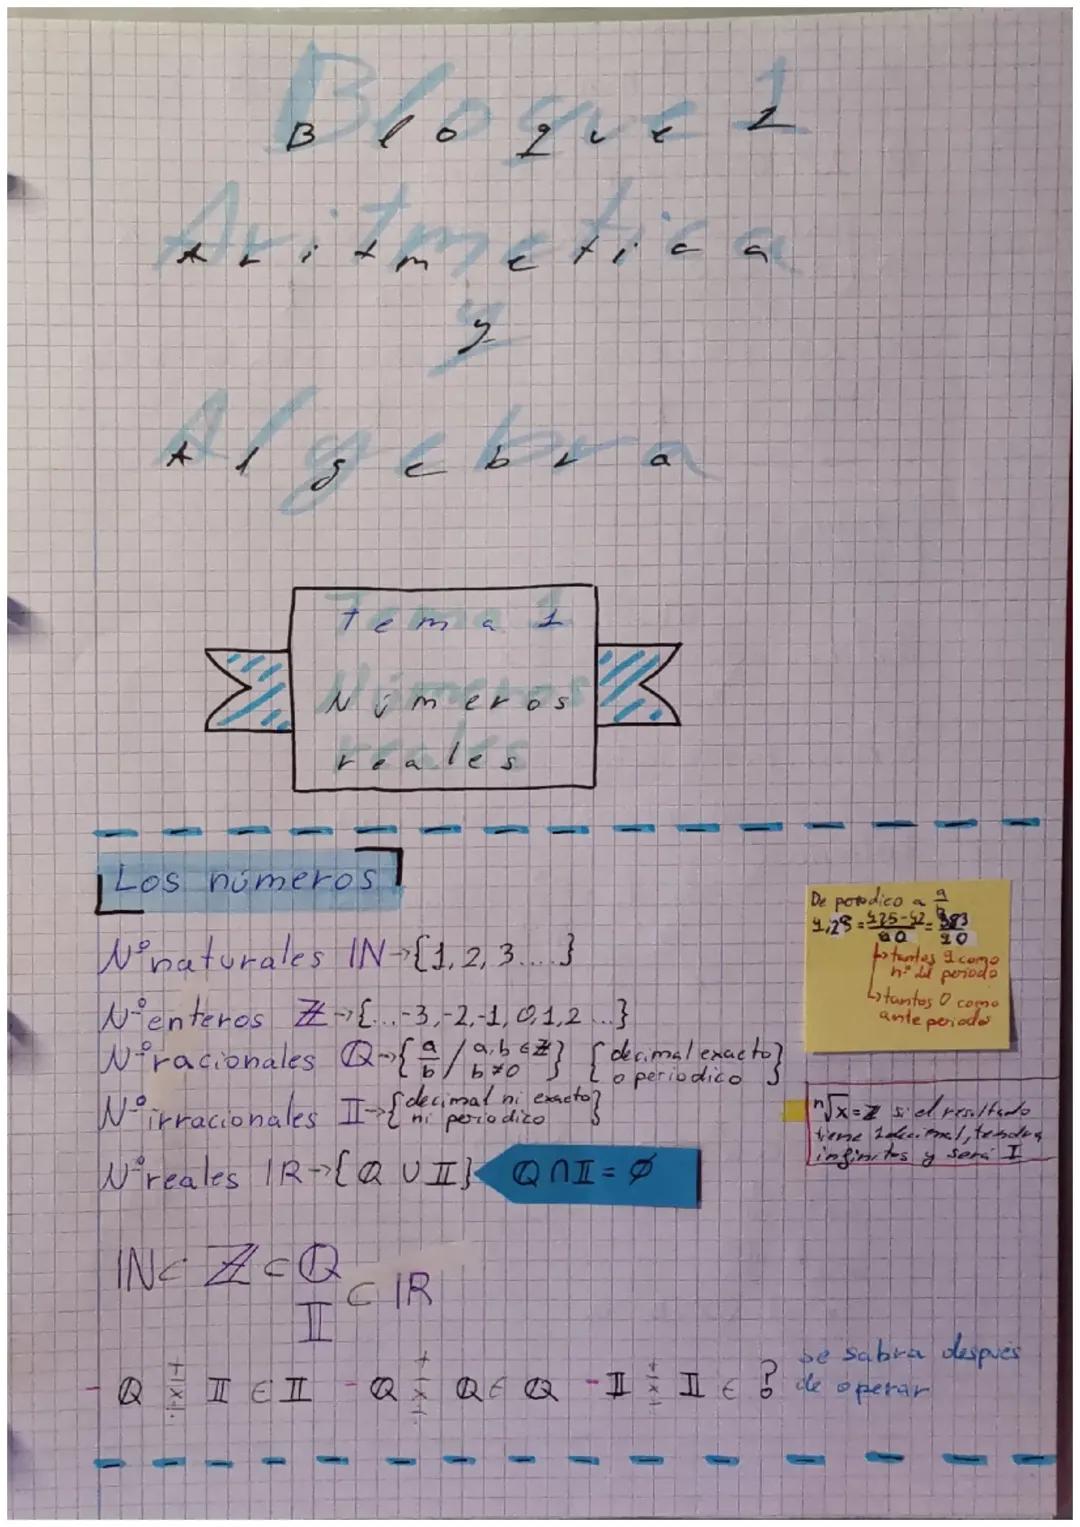 Bloque 1
Aritmetica
y
Algebra
Tema 1
Números
reales
Los números
Nºnaturales ℕ→{1, 2, 3....}
Nºenteros ℤ→{...-3,-2,-1, 0,1,2 ...}
Nºracionales ℚ→{a/b / a,b ∈ ℤ b≠0} {decimal exacto o periodico}
Nºirracionales 𝕀→{decimal ni exacto ni periodico}
Nºreales ℝ→{ℚ ∪ 𝕀} ℚ ∩ 𝕀 = ∅
De periodico a a/b
= 425-42/90 = 383/90
↳tantos 9 como
nº del periodo
↳tantos 0 como
ante periodo
ⁿ√x = ℤ si el resultado
tiene 1 decimal, tendra
infinitos y será 𝕀
ℕ ⊂ ℤ ⊂ ℚ
𝕀 ⊂ ℝ
- ℚ + - x ÷ 𝕀 ∈ 𝕀 - ℚ + - x ÷ ℚ ∈ ℚ - 𝕀 + - x ÷ 𝕀 ∈ ? se sabra después
de operar